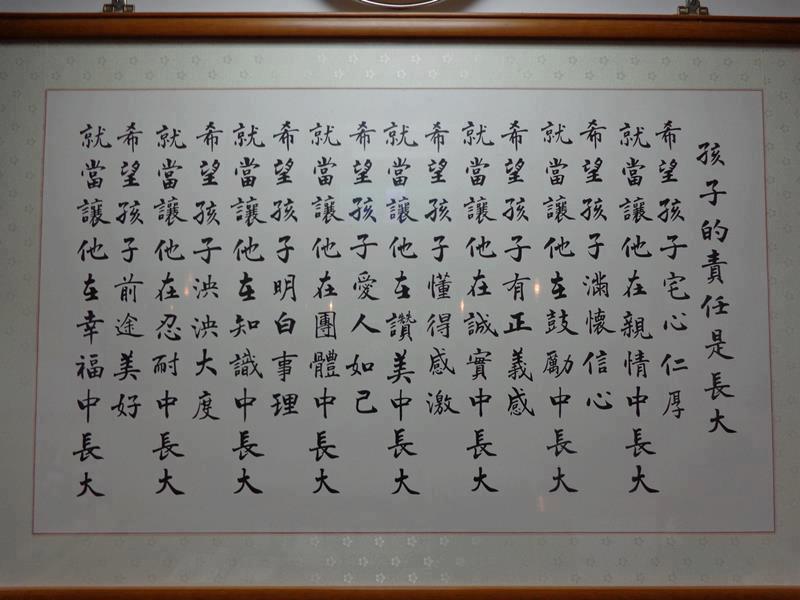 孩子的責任是長大
希望孩子宅心仁厚
就當讓他在親情中長大
希望孩子滿懷信心
就當讓他在鼓勵中長大
希望孩子有正義感
就當讓他在誠實中長大
希望孩子懂得感激
就當讓他在讚美中長大
希望孩子愛人如己
就當讓他在團體中長大
希望孩子明白事理
就當讓他在知識中長大
希望孩子泱泱大度
就當讓他在忍耐中長大
希望孩子前途美好
就當讓他在幸福中長大